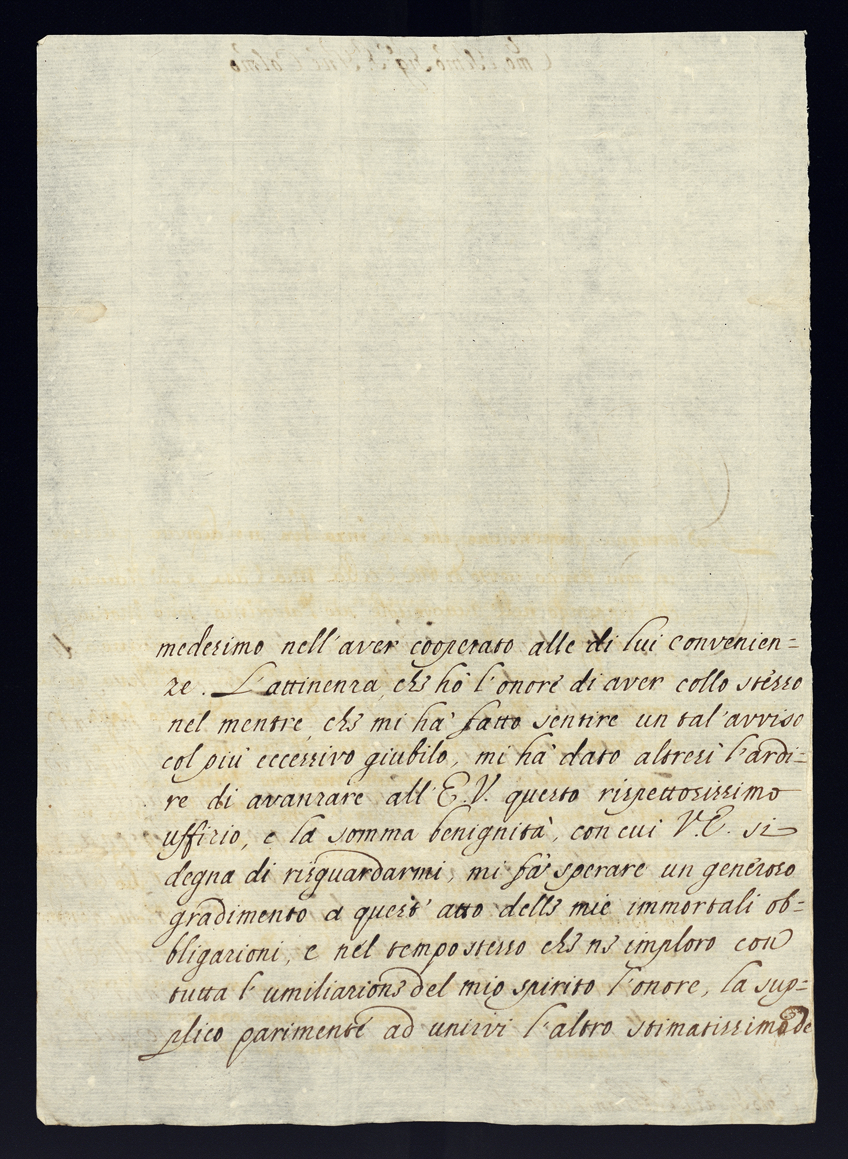 medesimo nell'aver cooperato alle di lui convenien=
ze. L'attinenza, che hò l'onore di aver collo stesso
nel mentre, che mi hà fatto sentire un tal'avviso
col più eccessivo giubilo, mi hà dato altresì l'ardi=
re di avanzare all'E.V. questo rispettosissimo
uffizio, e la somma benignità, con cui V.E. si
degna di risguardarmi, mi fà sperare un generoso
gradimento a quest'atto delle mie immortali ob=
bligazioni, e nel tempo stesso che ne imploro con
tutta l'umiliazione del mio spirito l'onore, la sup=
plico parimente ad unirvi l'altro stimatissimo de